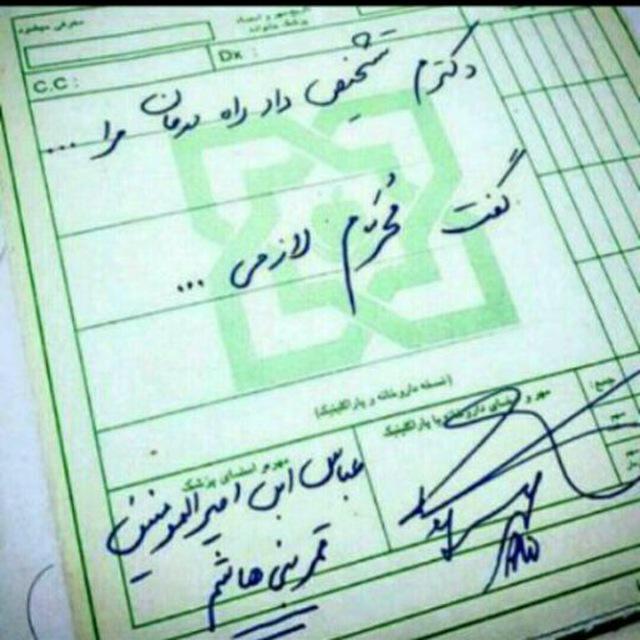 C.C :
Dx :
دکترم تشخیص داد راه درمان مرا ...
گفت مُحَرَّم لازمی ...
(نسخه داروخانه و پاراکلینیک)
مهر و امضای پزشک
مهر و امضای داروخانه یا پاراکلینیک
جمع :
عباس ابن امیرالمومنین
قمر بنی هاشم